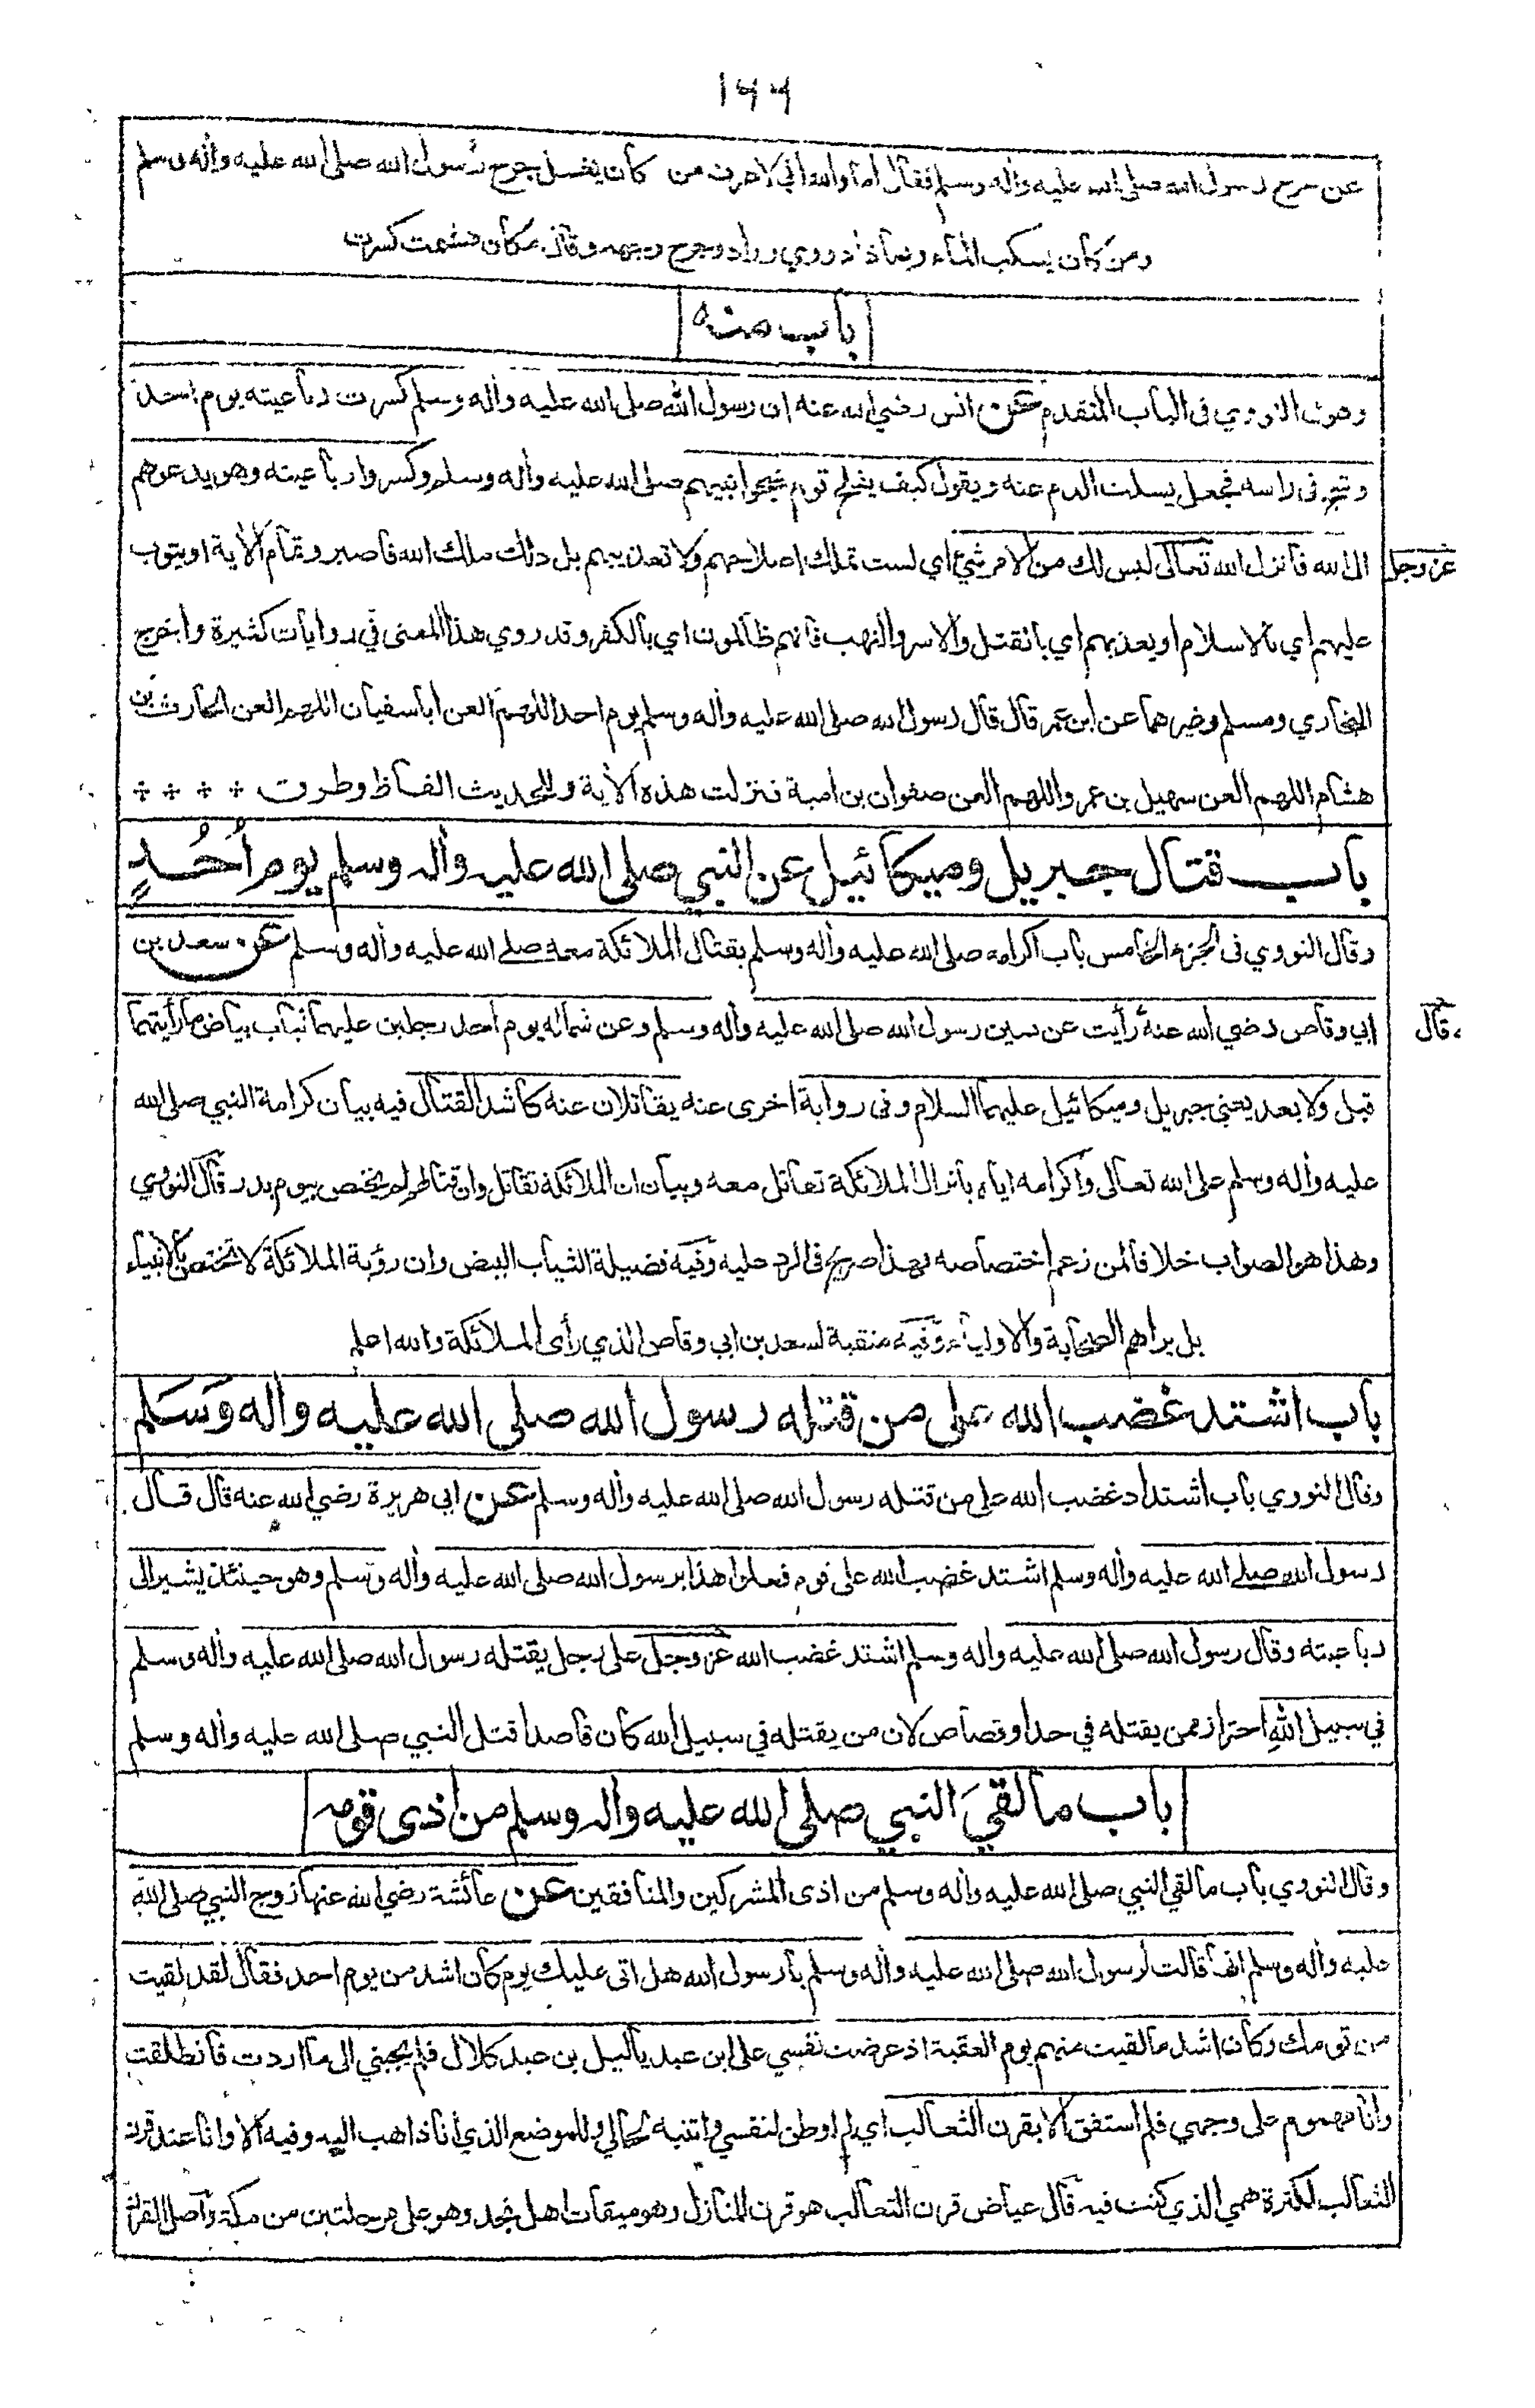 ١٤٤
عن جرح رسول الله صلى الله عليه وأله وسلم فقال اما والله اني لاعرف من كان يغسل جرح رسول الله صلى الله عليه وأله وسلم
ومن كان يسكب الماء وبماذا دووي وزاد وجرح وجهه وقال مكان هشمت كسرت
باب منه
وهو فى النووي فى الباب المتقدم عن انس رضي الله عنه ان رسول الله صلى الله عليه وأله وسلم كسرت رباعيته يوم احد
وشج فى راسه فجعل يسلت الدم عنه ويقول كيف يفلح قوم شجوا نبيهم صلى الله عليه وأله وسلم وكسروا رباعيته وهو يدعوهم
الى الله فانزل الله تعالى ليس لك من الامر شيئ اي لست تملك اصلاحهم ولا تعذيبهم بل ذلك ملك الله فاصبر وتمام الأية او يتوب
عز وجل
عليهم اي بالاسلام او يعذبهم اي بالقتل والاسر والنهب فانهم ظالمون اي بالكفر وقد روي هذا المعنى في روايات كثيرة واخرج
البخاري ومسلم وغيرهما عن ابن عمر قال قال رسول الله صلى الله عليه وأله وسلم يوم احد اللهم العن اباسفيان اللهم العن الحارث بن
هشام اللهم العن سهيل بن عمرو اللهم العن صفوان بن امية فنزلت هذه الأية وللحديث الفاظ وطرق
باب قتال جبريل وميكائيل عن النبي صلى الله عليه وأله وسلم يوم اُحُدٍ
وقال النووي فى الجزء الخامس باب اكرامه صلى الله عليه وأله وسلم بقتال الملائكة معه صلى الله عليه وأله وسلم عن سعد بن
ابي وقاص رضي الله عنه رأيت عن يمين رسول الله صلى الله عليه وأله وسلم وعن شماله يوم احد رجلين عليهما ثياب بياض ما رأيتهما
قال
قبل ولا بعد يعني جبريل وميكائيل عليهما السلام وفى رواية اخرى عنه يقاتلان عنه كاشد القتال فيه بيان كرامة النبي صلى الله
عليه وأله وسلم على الله تعالى واكرامه اياه بانزال الملائكة تقاتل معه وبيان ان الملائكة تقاتل وان قتالهم لم يختص بيوم بدر قال النووي
وهذا هو الصواب خلافا لمن زعم اختصاصه فهذا صريح فى الرد عليه وفيه فضيلة الثياب البيض وان رؤية الملائكة لا تختص بالانبياء
بل يراهم الصحابة والاولياء وفيه منقبة لسعد بن ابي وقاص الذي رأى الملائكة والله اعلم
باب اشتد غضب الله على من قتله رسول الله صلى الله عليه وأله وَسَلم
وقال النووي باب اشتداد غضب الله على من قتله رسول الله صلى الله عليه وأله وسلم عن ابي هريرة رضي الله عنه قال قال
رسول الله صلى الله عليه وأله وسلم اشتد غضب الله على قوم فعلوا هذا برسول الله صلى الله عليه وأله وسلم وهو حينئذ يشير الى
رباعيته وقال رسول الله صلى الله عليه وأله وسلم اشتد غضب الله عز وجل على رجل يقتله رسول الله صلى الله عليه وأله وسلم
في سبيل اللهِ احترازممن يقتله في حد او قصاص لان من يقتله في سبيل الله كان قاصدا قتل النبي صلى الله عليه وأله وسلم
باب ما لقيَ النبي صلى الله عليه وأله وسلم من اذى قومه
وقال النووي باب ما لقي النبي صلى الله عليه وأله وسلم من اذى المشركين والمنافقين عن عائشة رضي الله عنها زوج النبي صلى الله
عليه وأله وسلم انها قالت لرسول الله صلى الله عليه وأله وسلم يارسول الله هل اتى عليك يوم كان اشد من يوم احد فقال لقد لقيت
من قومك وكان اشد ما لقيت منهم يوم العقبة اذ عرضت نفسي على ابن عبد ياليل بن عبد كلال فلم يجبني الى ما اردت فانطلقت
وانا مهموم على وجهي فلم استفق الا بقرن الثعالب اي لم اوطن لنفسي واتنبه لحالي وللموضع الذي أنا ذاهب اليه وفيه الا وانا عند قرن
الثعالب لكثرة همي الذي كنت فيه قال عياض قرن الثعالب هو قرن المنازل وهو ميقات اهل نجد وهو على مرحلتين من مكة واصل القرن